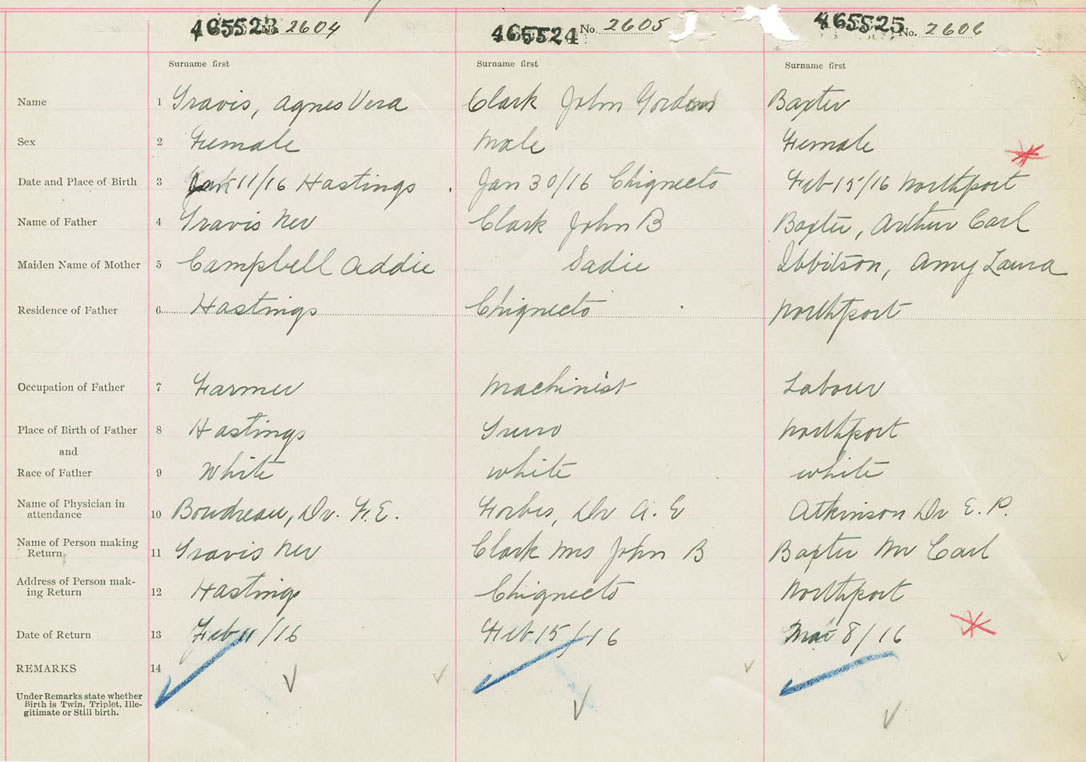 465523 2604 465524 No. 2605 465525 No. 2606
Surname first Surname first Surname first
Name 1 Travis, Agnes Vera Clark John Gordon Baxter
Sex 2 Female Male Female
Date and Place of Birth 3 Jan 11/16 Hastings Jan 30/16 Chignecto Feb 15/16 Northport
Name of Father 4 Travis Nev Clark John B Baxter, Arthur Carl
Maiden Name of Mother 5 Campbell Addie Sadie Ibbitson, Amy Laura
Residence of Father 6 Hastings Chignecto Northport
Occupation of Father 7 Farmer Machinist Labour
Place of Birth of Father 8 Hastings Truro Northport
and
Race of Father 9 White white white
Name of Physician in
attendance 10 Boudreau, Dr. F. E. Forbes, Dr A. E Atkinson Dr E. P.
Name of Person making
Return 11 Travis Nev Clark Mrs John B Baxter Mr Carl
Address of Person mak-
ing Return 12 Hastings Chignecto Northport
Date of Return 13 Feb 11/16 Feb 15/16 Mar 8/16
REMARKS 14
Under Remarks state whether
Birth is Twin, Triplet, Ille-
gitimate or Still birth.